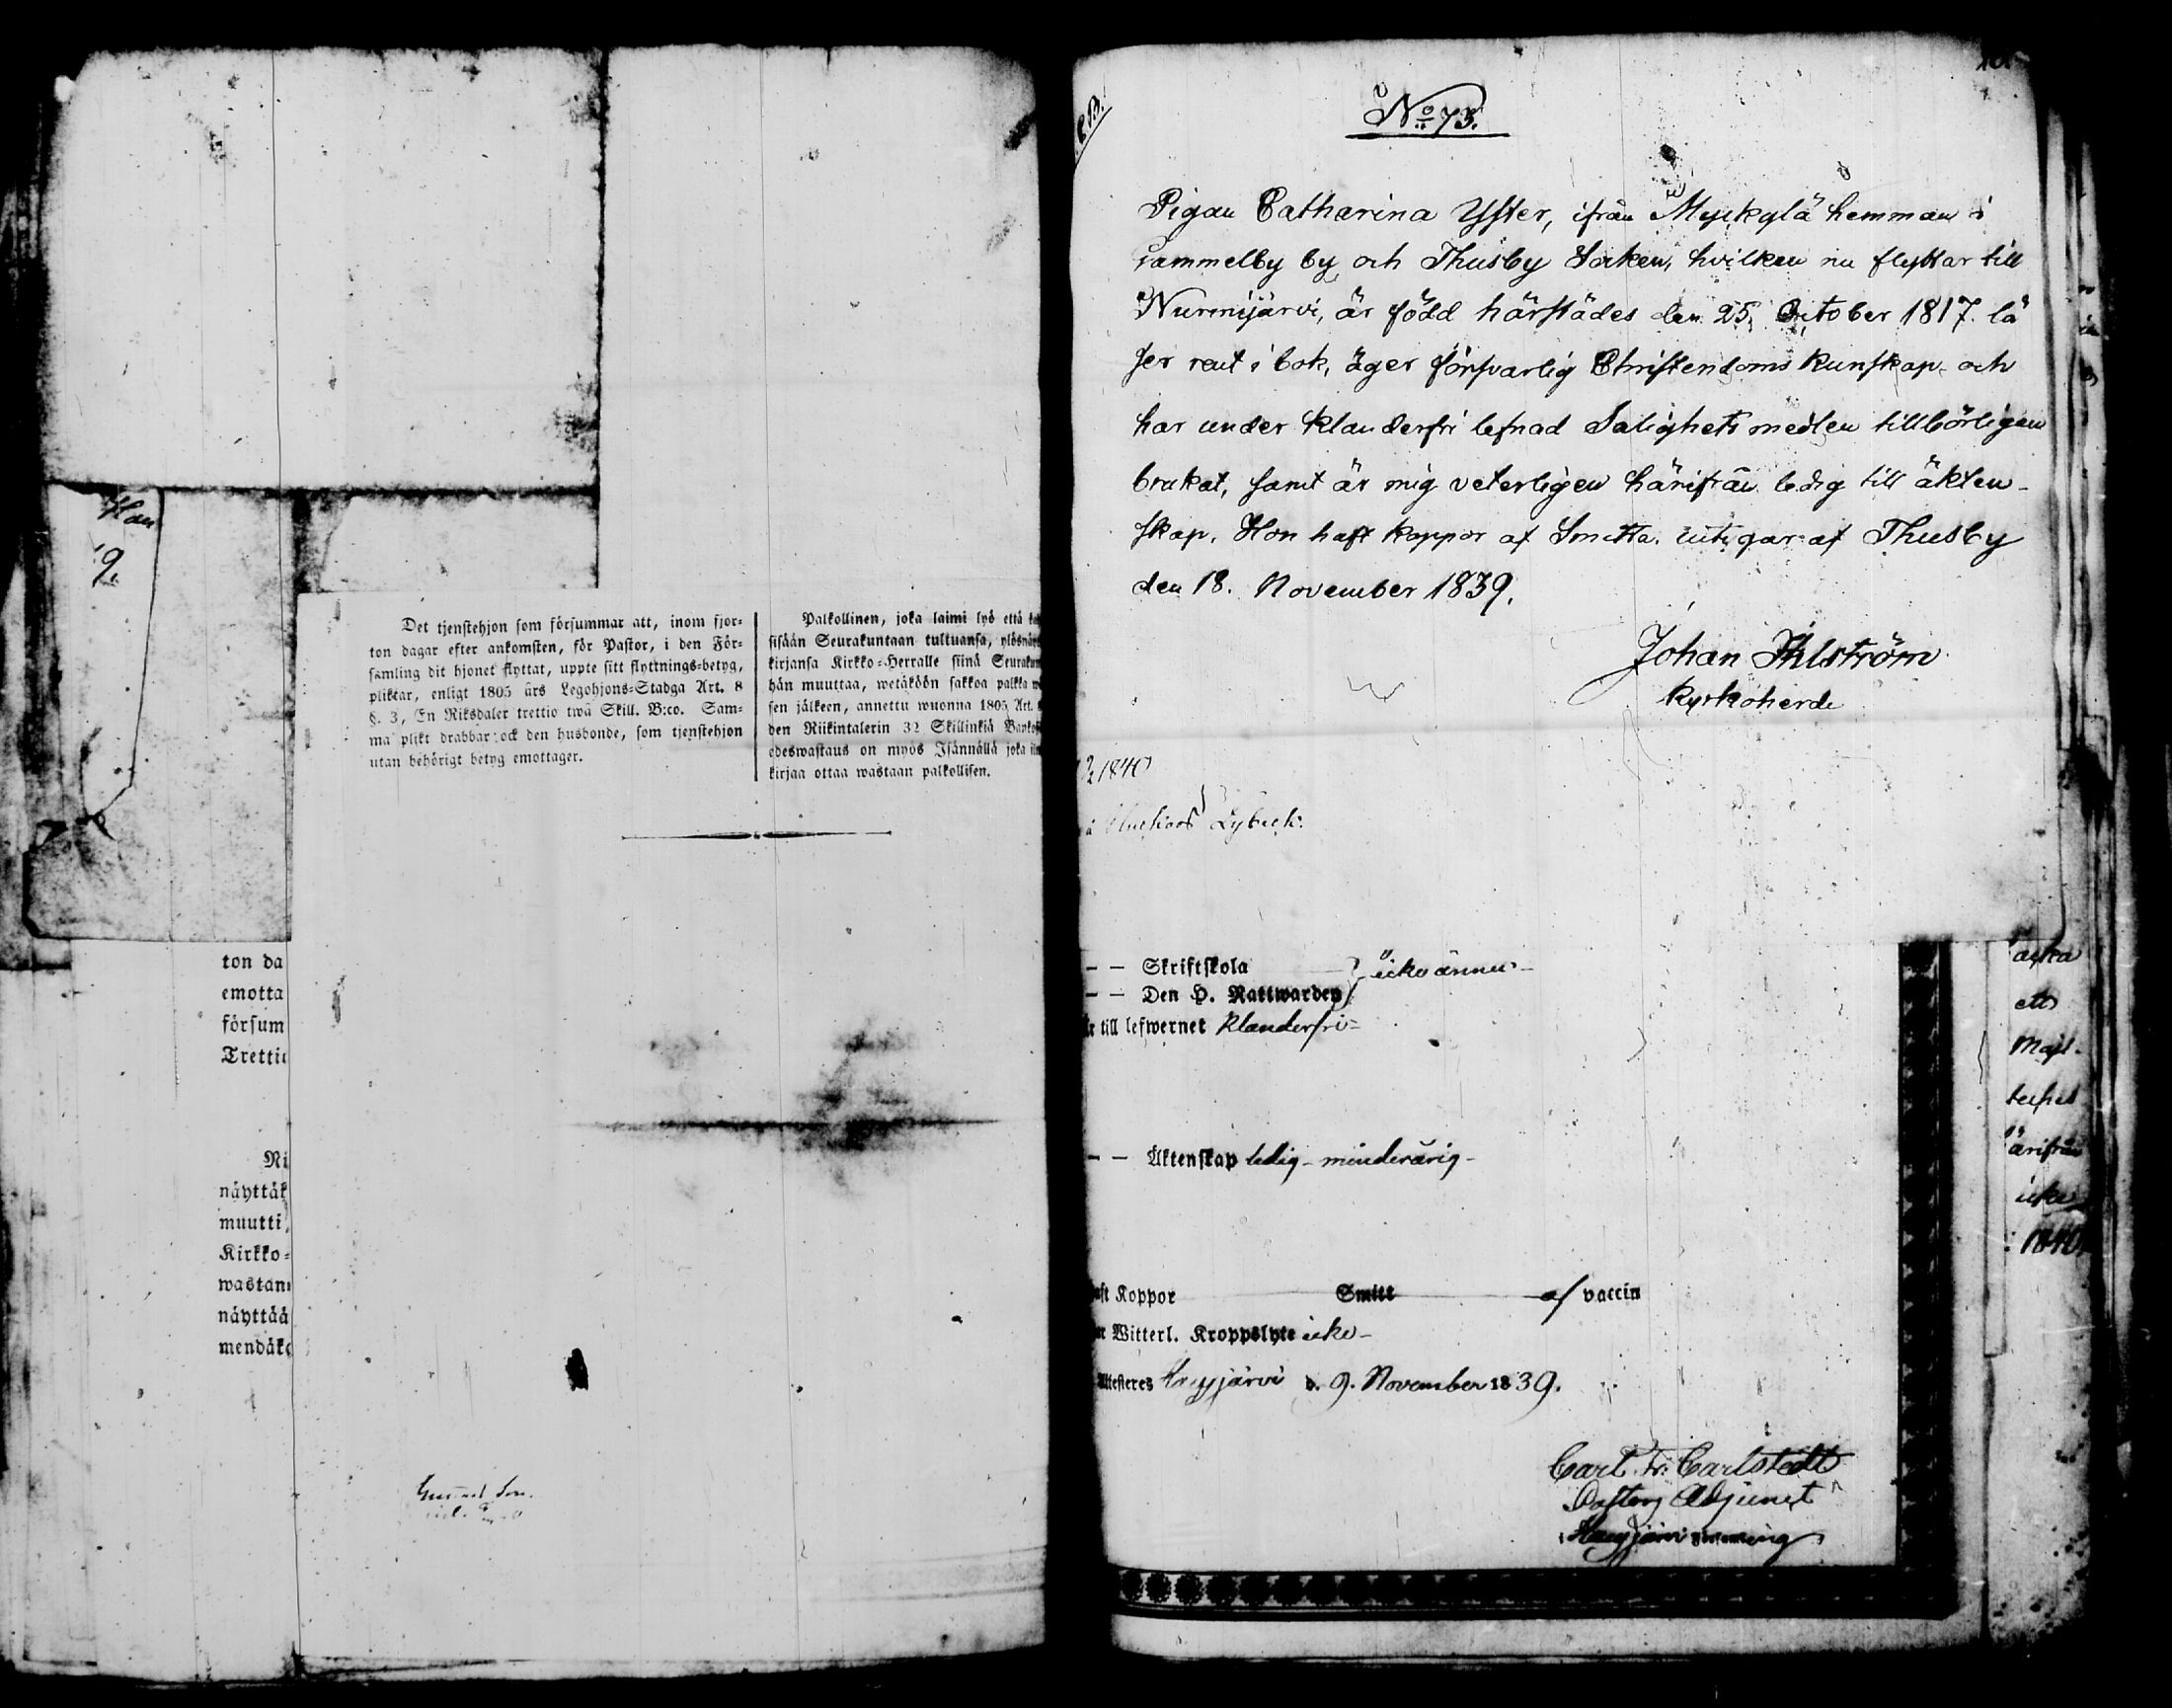 Han
9.
Det tjenstehjon som försummar att, inom fjor-
ton dagar efter ankomsten, för Pastor, i den För-
samling dit hjonet flyttat, uppte sitt flyttnings-betyg,
pliktar, enligt 1805 års Legohjons-Stadga Art. 8
§. 3, En Riksdaler trettio twå Skill. B:co. Sam-
ma plikt drabbar ock den husbonde, som tjenstehjon
utan behörigt betyg emottager.
Palkollinen, joka laimi lyö että
sisään Seurakuntaan tultuansa,
kirjansa Kirkko-Herralle siinä
hän muuttaa, wetäköön sakkoa palkka
sen jälkeen, annettu wuonna 1805 Art.
den Riikintalerin 32 Skillinkiä
edeswastaus on myös Isännällä joka
kirjaa ottaa wastaan palkollisen.
ton da
emotta
försum
Tretti
Ni
näyttäk
muutti
Kirkko-
wastan
näyttää
mendäk
No 73.
Pigan Catharina Yster, ifrån Myckylä hemman i
Gammelby by och Thusby Socken, hvilken nu flyttar till
Nurmijärvi, är född härstädes den 25 October 1817. lä
ser rent i bok, äger försvarlig Christendoms kunskap och
har under klanderfri lefnad Salighets medlen tillbörligen
brukat, samt är mig veterligen härifrån ledig till äkten-
skap. Hon haft koppor af Smitta. intygar af Thusby
den 18. November 1839.
Johan Ihlström
Kyrkoherde
1840
Lybeck.
— — Skriftskola
icke ännu
— — Den H. Nattwarden
till lefwernet klanderfri
— — Äktenskap ledig - minderårig -
Koppor Smitt af vaccin
Witterl. Kroppslyte icke -
Attesteras Loppjärvi d. 9. November 1839.
Carl Fr: Carlstedt
Pastors Adjunct
ett
härifrån
icke
1840